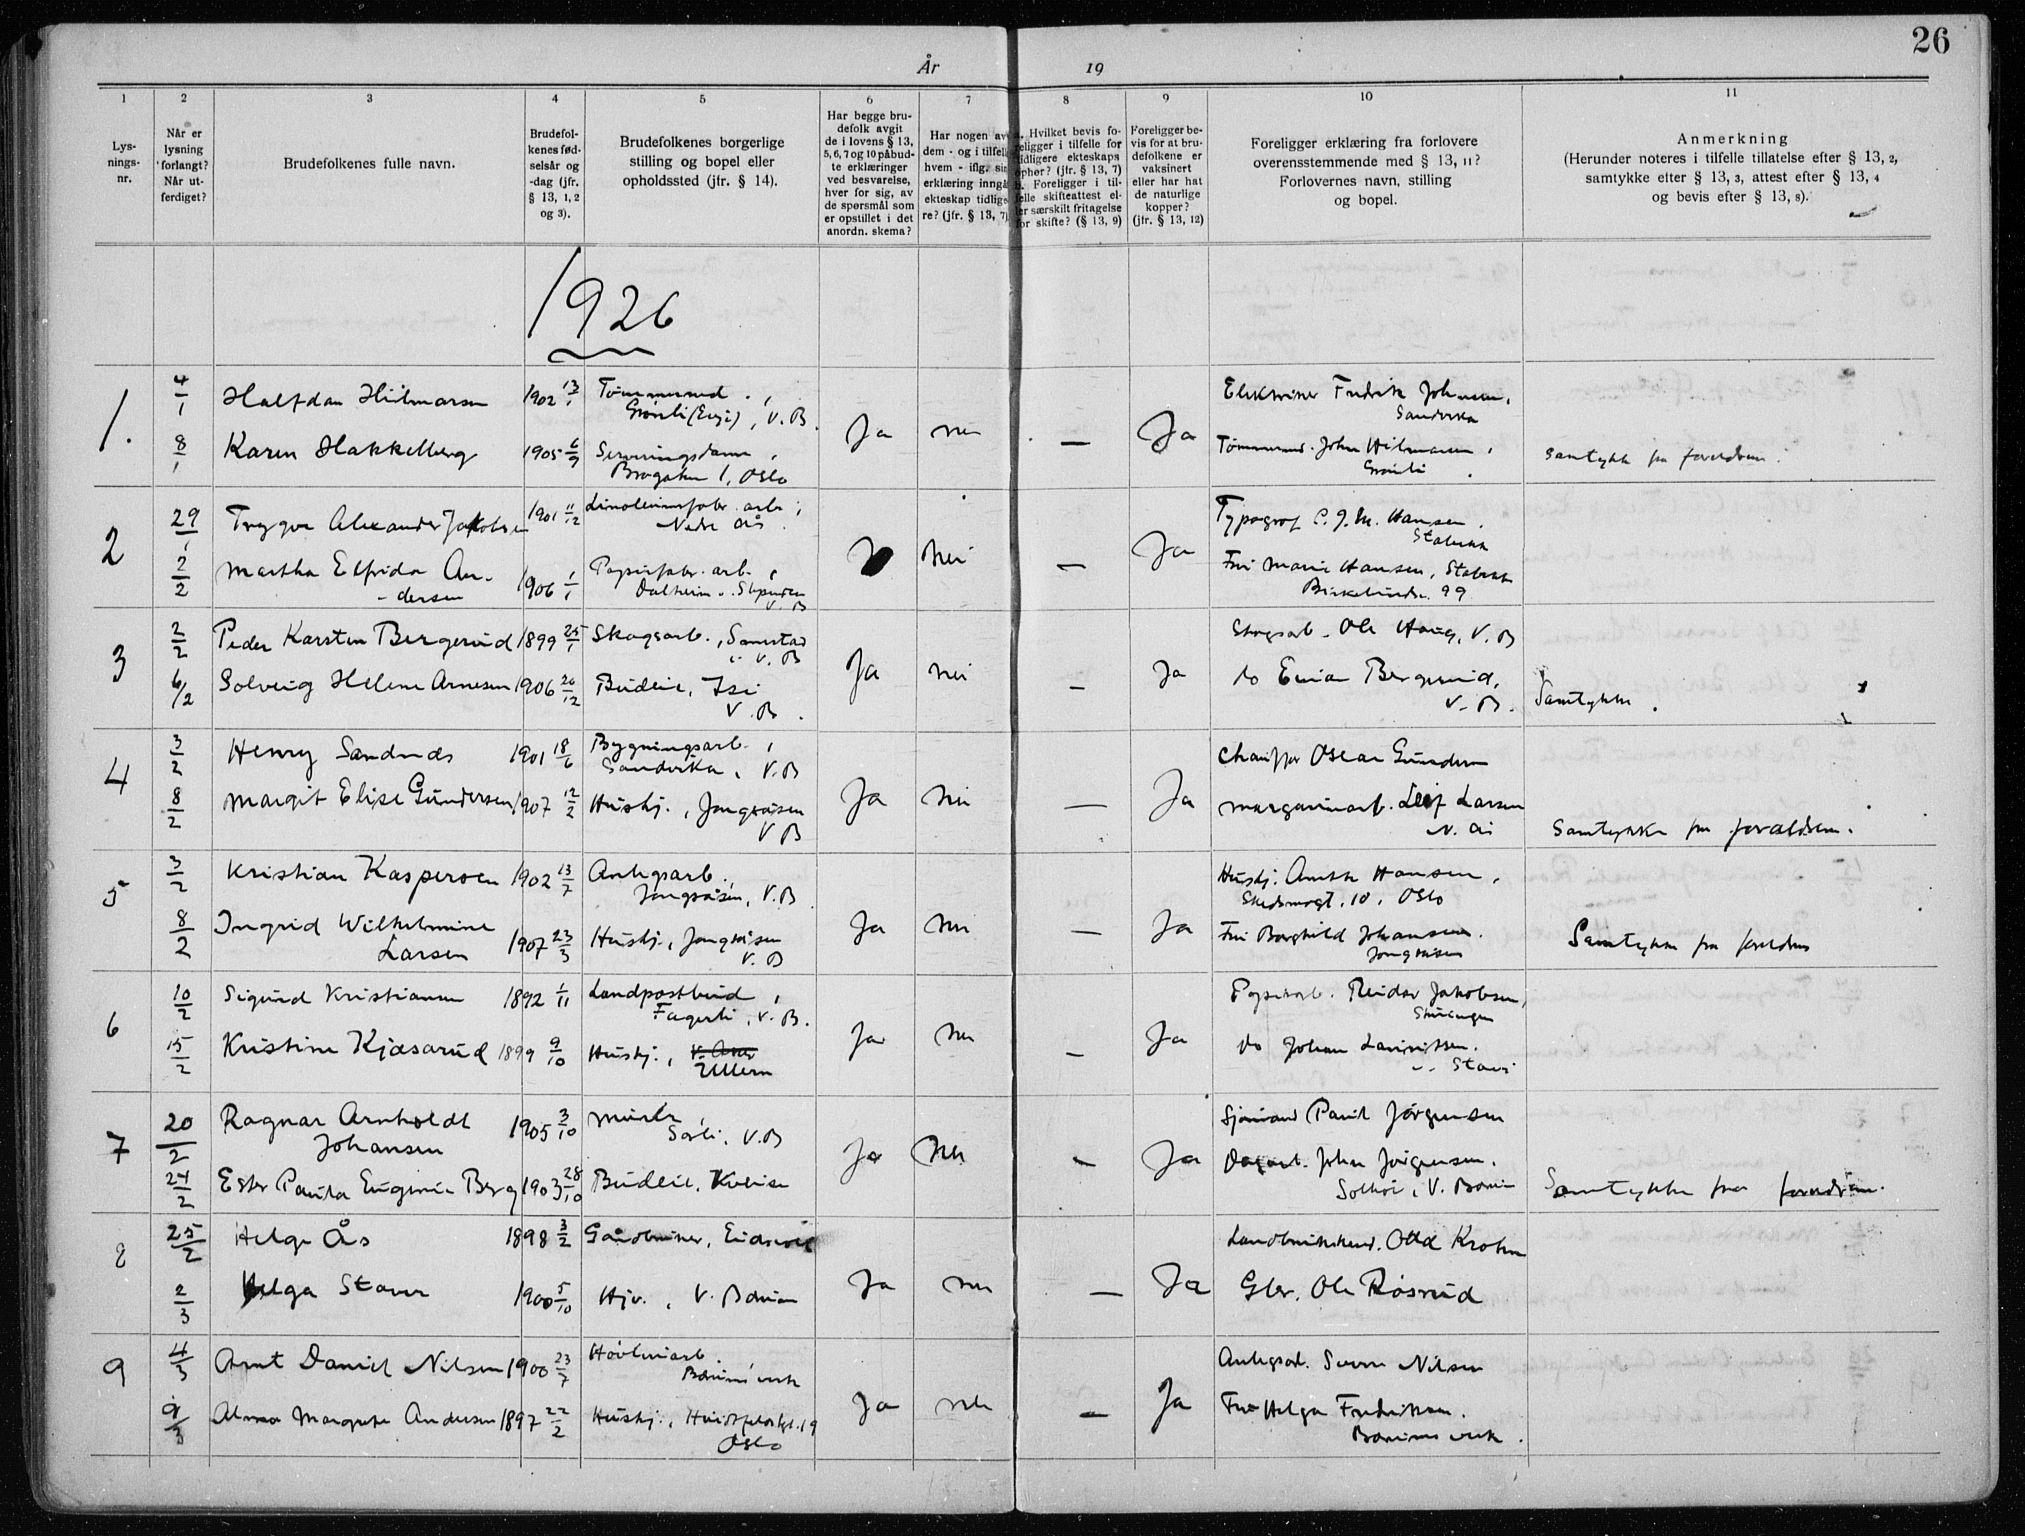 26
År 19
1 2 3 4 5 6 7 8 9 10 11
Lys-
nings-
nr.
Når er
lysning
forlangt?
Når ut-
ferdiget?
Brudefolkenes fulle navn.
Brudefol-
kenes fød-
selsår og
-dag (jfr.
§ 13, 1, 2
og 3).
Brudefolkenes borgerlige
stilling og bopel eller
opholdssted (jfr. § 14).
Har begge bru-
defolk avgit
de i lovens § 13,
5, 6, 7 og 10 påbud-
te erklæringer
ved besvarelse,
hver for sig, av
de spørsmål som
er opstillet i det
anordn. skema?
Har nogen av
dem - og i tilfelle
hvem - iflg. sin
erklæring inngå
ekteskap tidlige
re? (jfr. § 13, 7)
a. Hvilket bevis fo-
religger i tilfelle for
tidligere ekteskaps
ophør? (jfr. § 13, 7)
b. Foreligger i til-
felle skifteattest el-
ler særskilt fritagelse
for skifte? (§ 13, 9)
Foreligger be-
vis for at bru-
defolkene er
vaksinert
eller har hat
de naturlige
kopper?
(jfr. § 13, 12)
Foreligger erklæring fra forlovere
overensstemmende med § 13, 11?
Forlovernes navn, stilling
og bopel.
Anmerkning
(Herunder noteres i tilfelle tillatelse efter § 13, 2,
samtykke efter § 13, 3, attest efter § 13, 4
og bevis efter § 13, 8).
1926
1. 4/1 Halfdan Hilmarsen 1902 13/1 Tømmermand.,
Grønli (Evje), V. B.
Ja nei — Ja
Elektriker Fredrik Johnsen,
Sandvika
8/1 Karen Hakkelberg 1905 6/9 Serveringsdame,
Brogaten 1, Oslo
Tømmermd. John Hilmarsen,
Grønli.
Samtykke fra foreldrene.
2 29/1 Trygve Alexander Jakobsen 1901 11/12 Linoleumsfabr. arb.,
Nedre Ås
Ja Nei — Ja
Typograf C. J. M. Hansen,
Stabekk
2/2 Martha Elfrida An-
dersen 1906 1/1 Papirfabr. arb.,
Dalheim, Slependen
V. B
Fru Marie Hansen, Stabekk
99
3 2/2 Peder Karsten Bergerud 1899 25/1 Skogsarb.,
V. B
Ja nei — Ja
Skogsarb. Ole Haug, V. B
6/2 Solveig Helene Arnesen 1906 26/12 Budeie, Isi
V. B.
do Einar Bergerud,
V. B.
Samtykke.
4 3/2 Henry Sandnes 1901 18/6 Bygningsarb.,
Sandvika, V. B
Ja Nei — Ja
Chauffør Oscar Gundersen
8/2 Margit Elise Gundersen 1907 12/2 Hushj., Jongsåsen
V B
Margarinarb. Leif Larsen
N. Ås
Samtykke fra forældrene.
5 3/2 Kristian Kaspersen 1902 13/7 Anlegsarb.,
Jongsåsen, V. B
Ja Nei — Ja
Hushj. Hansen,
Skedsmogt. 10, Oslo
8/2 Ingrid Wilhelmine
Larsen 1907 23/3 Hushj., Jongsåsen
V. B
Fru Borghild Johansen.
Jongsåsen
Samtykke fra foreldrene
6 10/2 Sigurd Kristiansen 1892 1/11 Landpostbud,
Fagerli, V. B.
Ja nei — Ja
Papirarb. Reidar Jakobsen,
15/2 Kristine Kjæsarud 1899 9/10 Hushj., Ullern
do Johan Lauritssen.
7 20/2 Ragnar Arnholdt
Johansen 1905 3/10 Murer,
V. B
Ja Nei — Ja
Sjømand Paul Jørgensen
24/2 Ester Paula Eugenie Berg 1903 28/10 Budeie, Kveise
Dagarb. John Jørgensen.
Solhøi, V. Bærum
Samtykke fra foreldrene.
8 25/2 Helge Ås 1898 3/2 Gårdbruker, Eidsvoll
Ja nei — Ja
Landbrukskand. Odd Krohn
2/3 Helga Staver 1900 5/10 Hjv., V. Bærum
Gbr. Ole Røsrud
9 4/3 Arnt Daniel Nilsen 1900 23/7 Høvleriarb.,
Bærums verk
Ja nei — Ja
Anlegsarb. Sverre Nilsen
9/3 Alma Margrete Andersen 1897 22/2 Hushj., Huitfeldtsgt. 19
Oslo
Fru Helga Fredriksen.
Bærums verk.